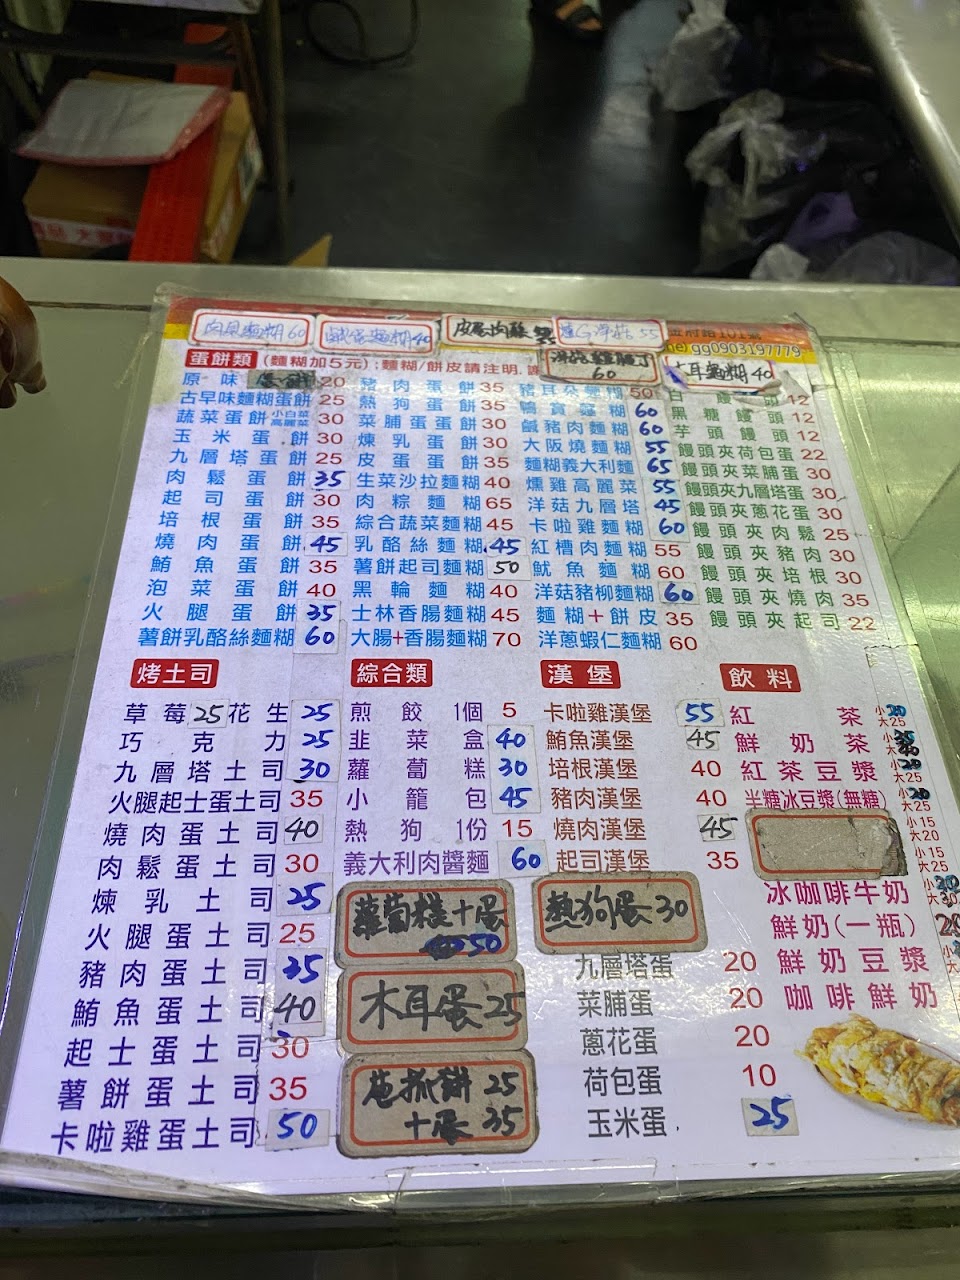 麵糊60
鹹蛋麵糊40
皮蛋肉鬆
55
府路101號
gg0903197779
60
木耳麵糊40
蛋餅類 (麵糊加5元):麵糊/餅皮請注明.
原味蛋餅20
古早味麵糊蛋餅25
蔬菜蛋餅 小白菜 高麗菜 30
玉米蛋餅30
九層塔蛋餅25
肉鬆蛋餅35
起司蛋餅30
培根蛋餅35
燒肉蛋餅45
鮪魚蛋餅35
泡菜蛋餅40
火腿蛋餅35
薯餅乳酪絲麵糊60
豬肉蛋餅35
熱狗蛋餅35
菜脯蛋蛋餅30
煉乳蛋餅30
皮蛋蛋餅35
生菜沙拉麵糊40
肉粽麵糊65
綜合蔬菜麵糊45
乳酪絲麵糊45
薯餅起司麵糊50
黑輪麵糊40
士林香腸麵糊45
大腸+香腸麵糊70
豬耳朵麵糊50
鴨賞麵糊60
鹹豬肉麵糊60
大阪燒麵糊55
麵糊義大利麵65
燻雞高麗菜55
洋菇九層塔45
卡啦雞麵糊60
紅槽肉麵糊55
魷魚麵糊60
洋菇豬柳麵糊60
麵糊+餅皮35
洋蔥蝦仁麵糊60
白饅頭12
黑糖饅頭12
芋頭饅頭12
饅頭夾荷包蛋22
饅頭夾菜脯蛋30
饅頭夾九層塔蛋30
饅頭夾蔥花蛋30
饅頭夾肉鬆25
饅頭夾豬肉30
饅頭夾培根30
饅頭夾燒肉35
饅頭夾起司22
烤土司
草莓25花生25
巧克力25
九層塔土司30
火腿起士蛋土司35
燒肉蛋土司40
肉鬆蛋土司30
煉乳土司25
火腿蛋土司25
豬肉蛋土司35
鮪魚蛋土司40
起士蛋土司30
薯餅蛋土司35
卡啦雞蛋土司50
綜合類
煎餃1個5
韭菜盒40
蘿蔔糕30
小籠包45
熱狗1份15
義大利肉醬麵60
蘿蔔糕十蛋
50
木耳蛋25
蔥抓餅25
十蛋35
漢堡
卡啦雞漢堡55
鮪魚漢堡45
培根漢堡40
豬肉漢堡40
燒肉漢堡45
起司漢堡35
熱狗蛋30
九層塔蛋20
菜脯蛋20
蔥花蛋20
荷包蛋10
玉米蛋25
飲料
紅茶 小20 大25
鮮奶茶
紅茶豆漿 小20 大25
半糖冰豆漿(無糖) 小20 大25
小15 大20
小15 大25
冰咖啡牛奶 小20 大30
鮮奶(一瓶)
鮮奶豆漿
咖啡鮮奶